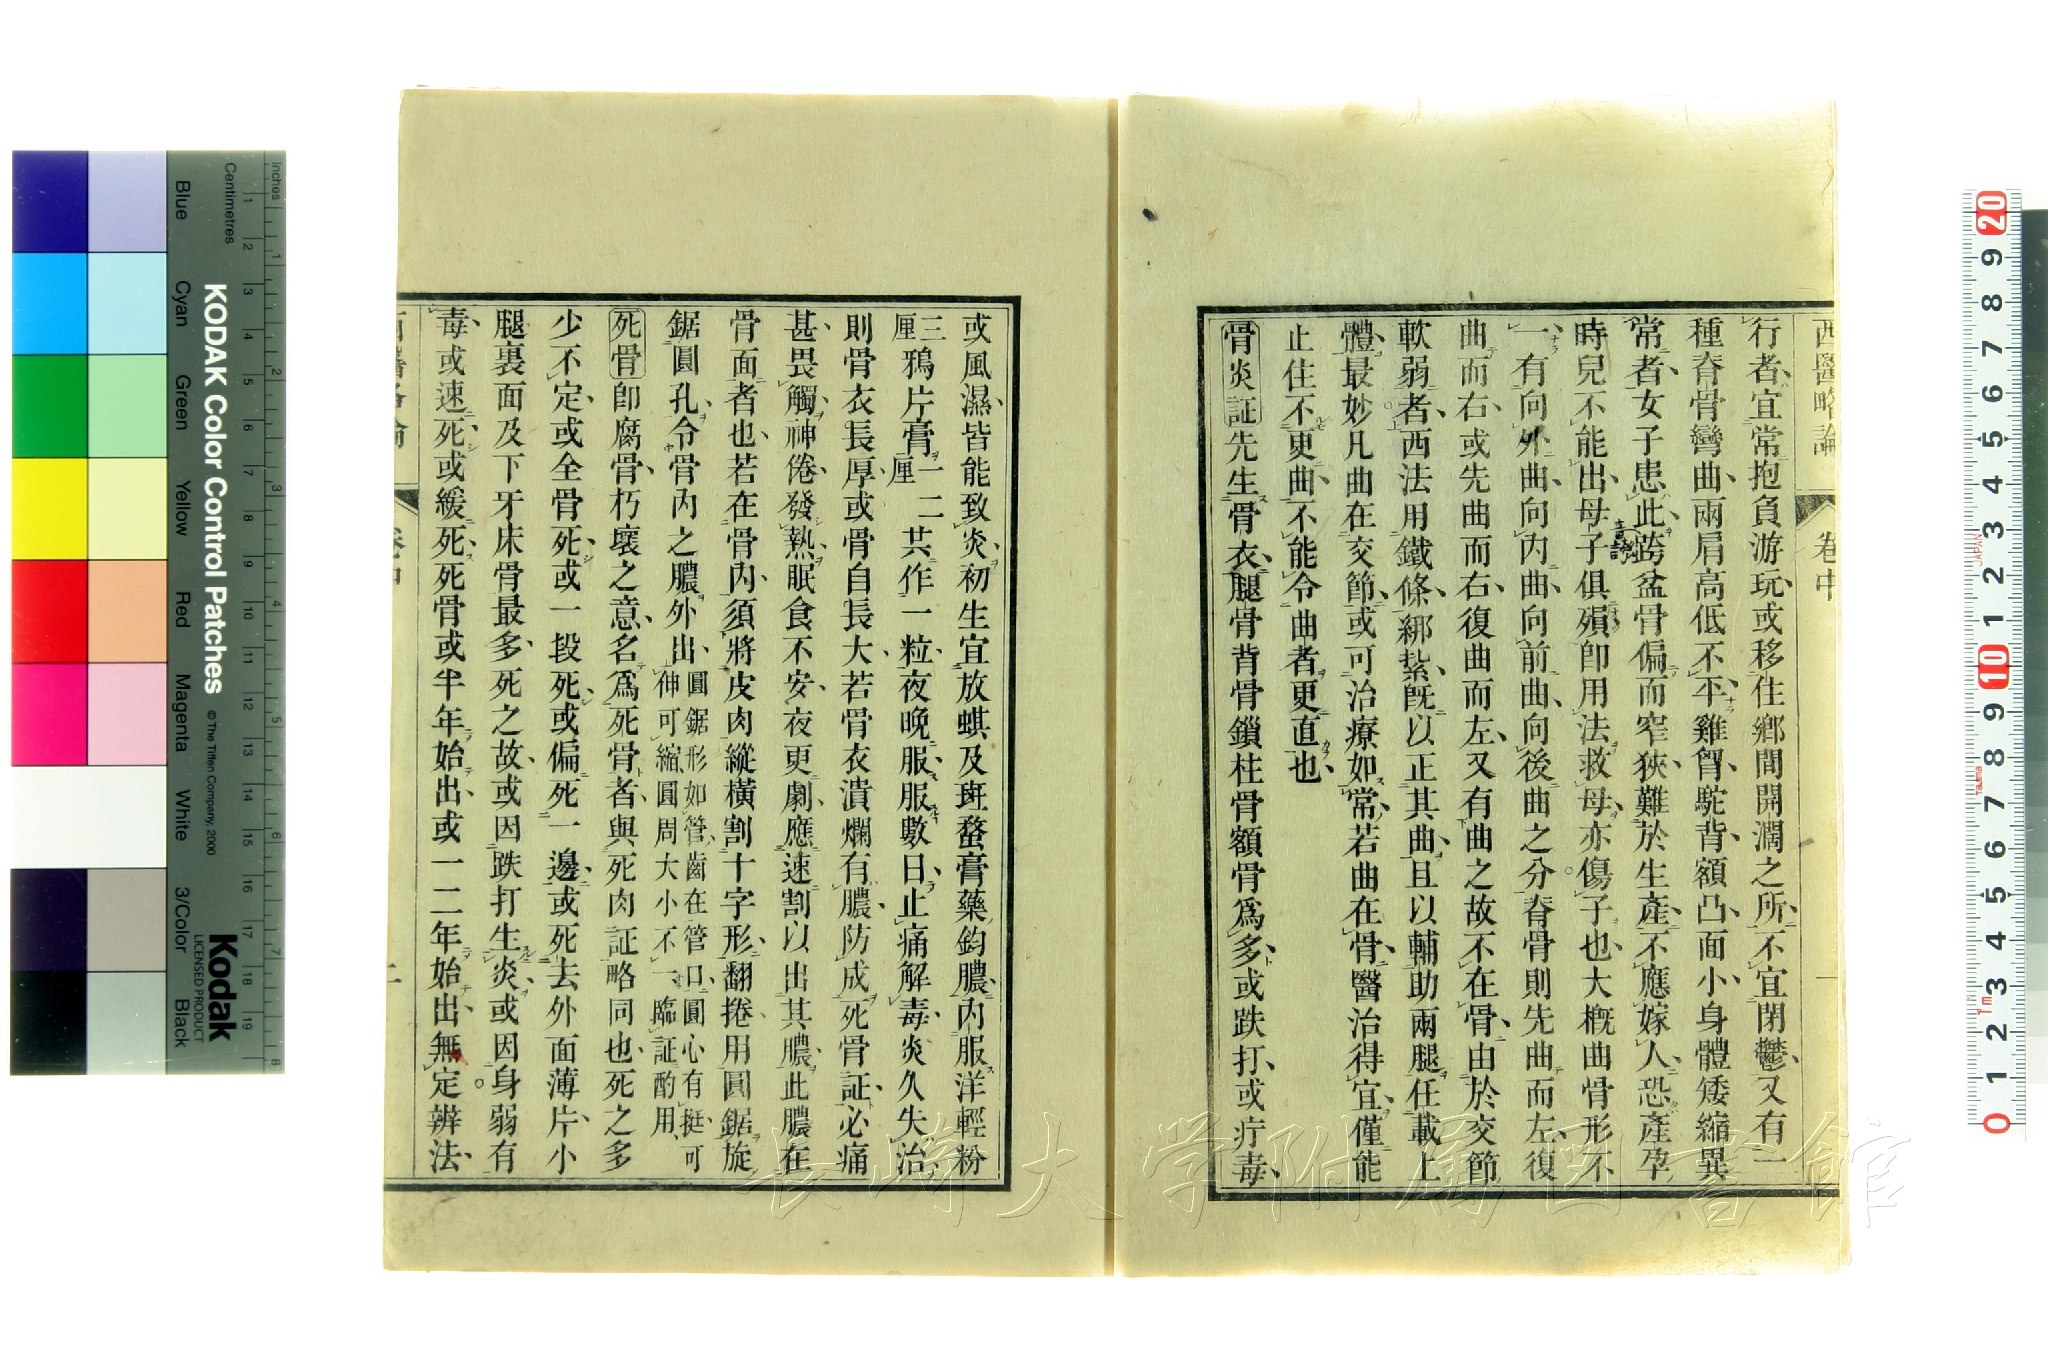 西醫略論
卷中
行者宜常抱負游玩或移住鄉間開濶之所不宜閉鬱又有一
種脊骨彎曲兩肩高低不平雞胷駝背額凸面小身體矮縮異
常者女子患此跨盆骨偏而窄狹難於生產不應嫁人恐產孕
時兒不能出母子俱殞卽用法救母亦傷子也大槪曲骨形不
一有向外曲向內曲向前曲向後曲之分脊骨則先曲而左復
曲而右或先曲而右復曲而左又有曲之故不在骨由於交節
軟弱者西法用鐵條綁紮旣以正其曲且以輔助兩腿任載上
體最妙凡曲在交節或可治療如常若曲在骨醫治得宜僅能
止住不更曲不能令曲者更直也
骨炎証先生骨衣腿骨背骨鎖柱骨額骨爲多或跌打或疔毒
或風濕皆能致炎初生宜放蜞及斑蝥膏藥鈞膿內服洋輕粉
三厘鴉片膏一厘二共作一粒夜晚服服數日止痛解毒炎久失治
則骨衣長厚或骨自長大若骨衣潰爛有膿防成死骨証必痛
甚畏觸神倦發熱眠食不安夜更劇應速割以出其膿此膿在
骨面者也若在骨內須將皮肉縱橫割十字形翻捲用圓鋸旋
鋸圓孔令骨內之膿外出圓鋸形如管齒在管口圓心有挺可
伸可縮圓周大小不一臨証酌用
死骨卽腐骨朽壞之意名爲死骨者與死肉証略同也死之多
少不定或全骨死或一段死或偏死一邊或死去外面薄片小
腿裏面及下牙床骨最多死之故或因跌打生炎或因身弱有
毒或速死或緩死死骨或半年始出或一二年始出無定辨法
KODAK Color Control Patches
© The Tiffen Company, 2000
Kodak
LICENSED PRODUCT
Inches
Centimetres
Blue
Cyan
Green
Yellow
Red
Magenta
White
3/Color
Black
JAPAN
Tajima
長崎大学附属図書館